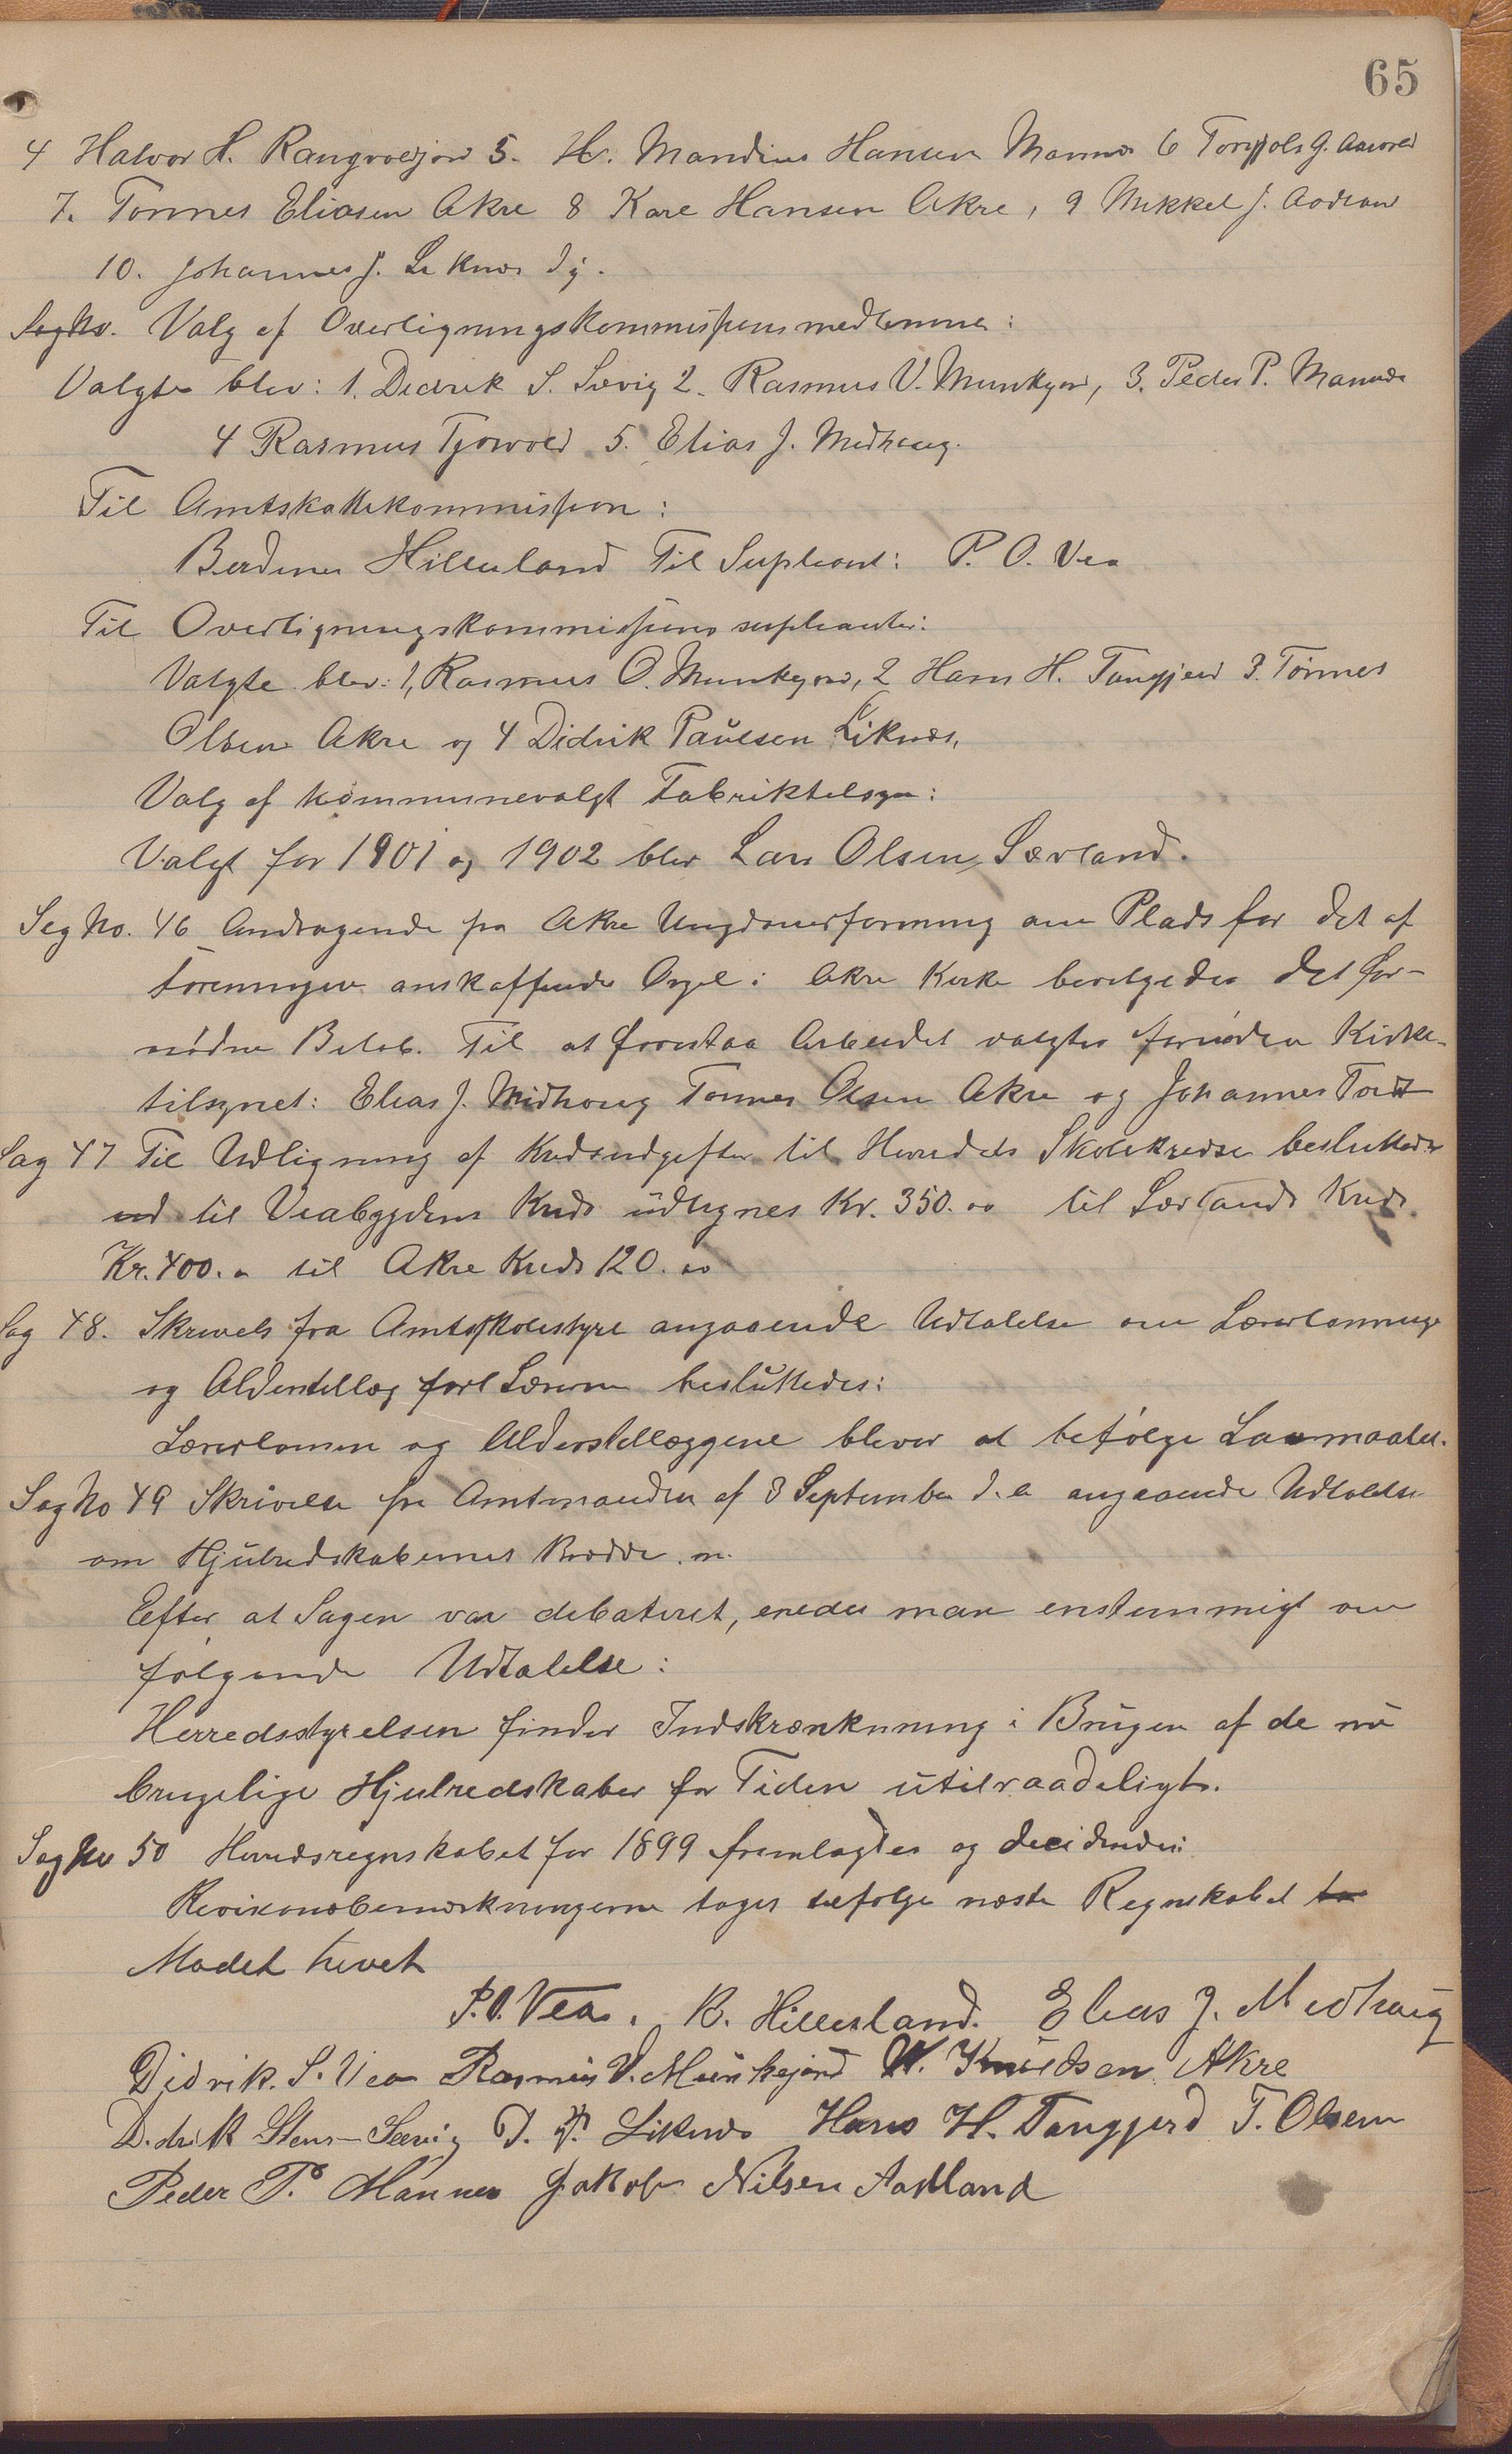 65
4 Halvor H. Rangvoldjord 5. H. Mandius Hansen Mannes 6
7. Tonnes Eliasen Akre 8 Kare Hansen Akre, 9 Mikkel J.
10. Johannes J. Liknes
Sag No. Valg af Overligningskommissionsmedlemmer:
Valgte blev: 1. Didrik S. Sævig 2. Rasmus V. Munkejord, 3. Peder P. Mannes
4 Rasmus Tjosvold 5. Elias J. Midhaug.
Til Amtskattekommission:
Berdines Hillesland Til Supleant: P. O. Vea
Til Overligningskommissions supleanter:
Valgte blev: 1, Rasmus O. Munkejord, 2 Hans H. Tangjerd 3. Tønnes
Olsen Akre og 4 Didrik Paulsen Liknes,
Valg af kommunevalgt Fabriktilsyn:
Valgt for 1901 og 1902 blev Lars Olsen Sævland.
Sag No. 46 Andragende fra Akre Ungdomsforening om Plads for det af
Foreningen anskaffende Orgel i Akre Kirke bevilgedes det for-
nødne Beløb. Til at forestaa Arbeidet valgtes foruden Kirke-
tilsynet: Elias J. Midhaug Tonnes Olsen Akre og Johannes
Sag 47 Til Udligning af Kredsudgifter til Herredets Skolekredse besluttedes
ud til Veabygdens Kreds udlignes Kr. 350.00 til Sævlands Kreds
Kr. 400.00 til Akre Kreds 120.00
Sag 48. Skrivels fra Amtsskolestyre angaaende Udtalelse om Lærerlønninge
og Alderstillæg for Lærerne besluttedes:
Lærerlønnen og Alderstillæggene bliver at befølge Lavmaalet.
Sag No 49 Skrivelse fra Amtmanden af 8 September d.a. angaaende Udtalelse
om Hjulredskabernes Bredde m.
Efter at Sagen var debateret, enedes man enstemmigt om
følgende Udtalelse:
Herredsstyrelsen finder Indskrænkning i Brugen af de nu
brugelige Hjulredskaber for Tiden utilraadeligt.
Sag No 50 Herredsregnskabet for 1899 fremlagdes og decideredes:
Revisionsbemærkningerne tages tilfølge næste Regnskabet
Mødet hævet
P.O. Vea. B. Hillesland. Elias J. Midhaug
Didrik. S. Vea Rasmus V. Munkejord W. Knudsen Akre
Didrik Stens-Sævig D. P. Liknes Hans H. Tangjerd T. Olsen
Peder P. Mannes Jakob Nilsen Aadland